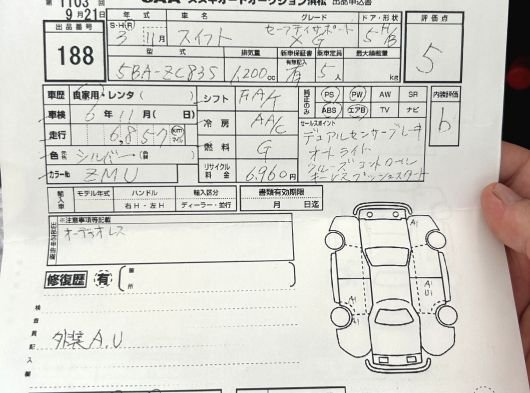 第1103回 スズキオートオークション浜松 出品申込書
9月21日
出品番号
188
年式 車名 グレード ドア・形状
S・H(R) 3年11月 スイフト セーフティサポート XG 5 H/B
評価点
5
型式 排気量 新車保証書 乗車定員 最大積載量
有無記入
5BA-ZC83S 1,200cc 有 5人 KR
車歴 自家用・レンタ( )
シフト FA/T
車検 6年11月(日)
冷房 AA/C
走行 6,857 km マイル
燃料 G
色 シルバー
カラー№ ZMU
リサイクル料金 6,960円
純正のみ PS PW AW SR
ABS エアB TV ナビ
内装評価
b
セールスポイント
デュアルセンサーブレーキ
オートライト
クルーズコントロール
キーレスプッシュスタート
輸入車 モデル年式 ハンドル 輸入区分 書類有効期限
右H・左H ディーラー・並行 月 日迄
※注意事項等記載
オーディオレス
修復歴 有 箇所
検査員記入欄
外装A.U
A1
A1
U1
A1
U1